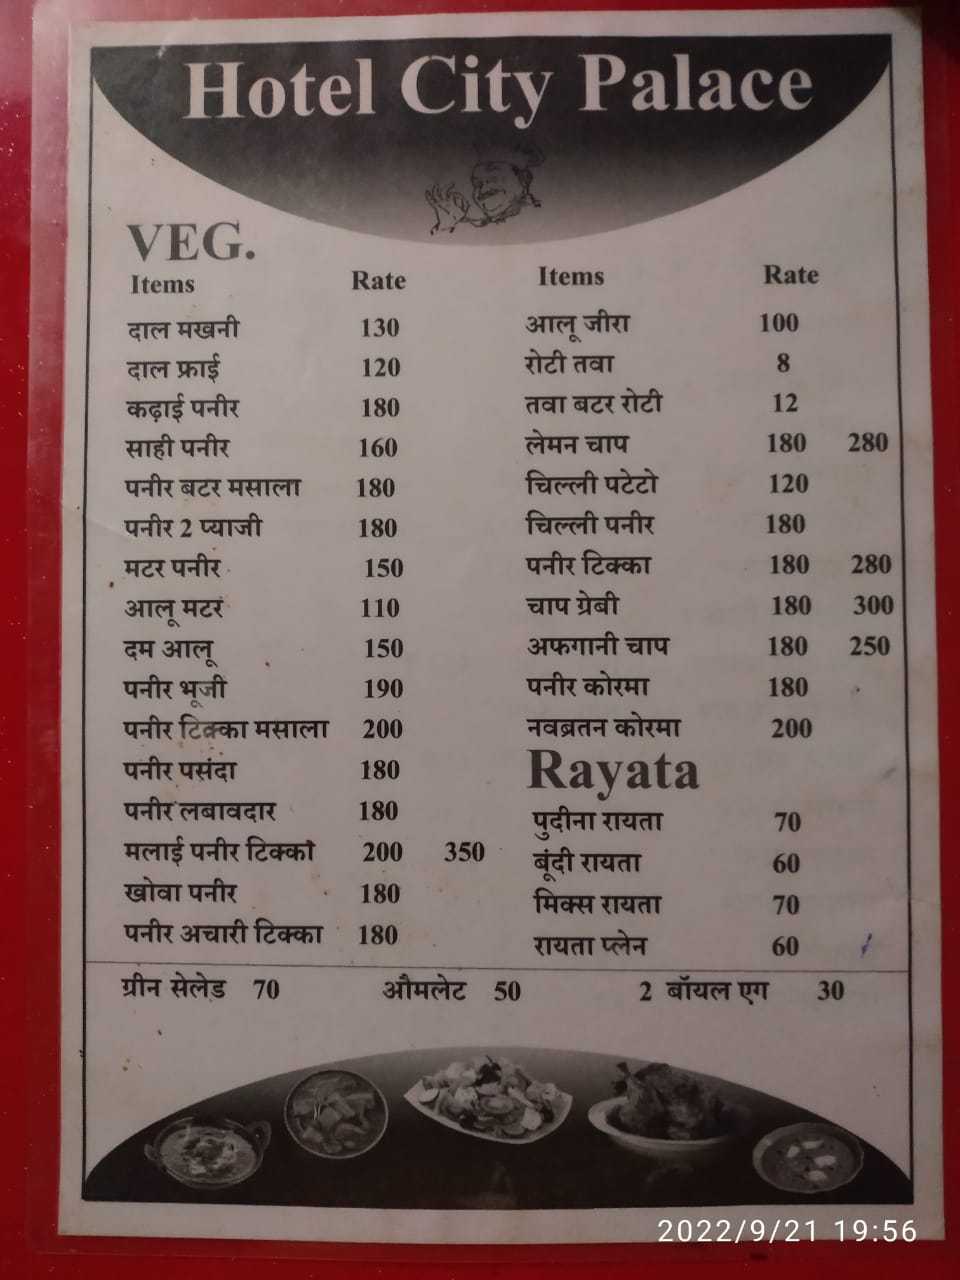 Hotel City Palace
VEG.
Items Rate
दाल मखनी 130
दाल फ्राई 120
कढ़ाई पनीर 180
साही पनीर 160
पनीर बटर मसाला 180
पनीर 2 प्याजी 180
मटर पनीर 150
आलू मटर 110
दम आलू 150
पनीर भूजी 190
पनीर टिक्का मसाला 200
पनीर पसंदा 180
पनीर लबावदार 180
मलाई पनीर टिक्का 200 350
खोवा पनीर 180
पनीर अचारी टिक्का 180
Items Rate
आलू जीरा 100
रोटी तवा 8
तवा बटर रोटी 12
लेमन चाप 180 280
चिल्ली पटेटो 120
चिल्ली पनीर 180
पनीर टिक्का 180 280
चाप ग्रेबी 180 300
अफगानी चाप 180 250
पनीर कोरमा 180
नवब्रतन कोरमा 200
Rayata
पुदीना रायता 70
बूंदी रायता 60
मिक्स रायता 70
रायता प्लेन 60
ग्रीन सेलेड 70 औमलेट 50 2 बॉयल एग 30
2022/9/21 19:56